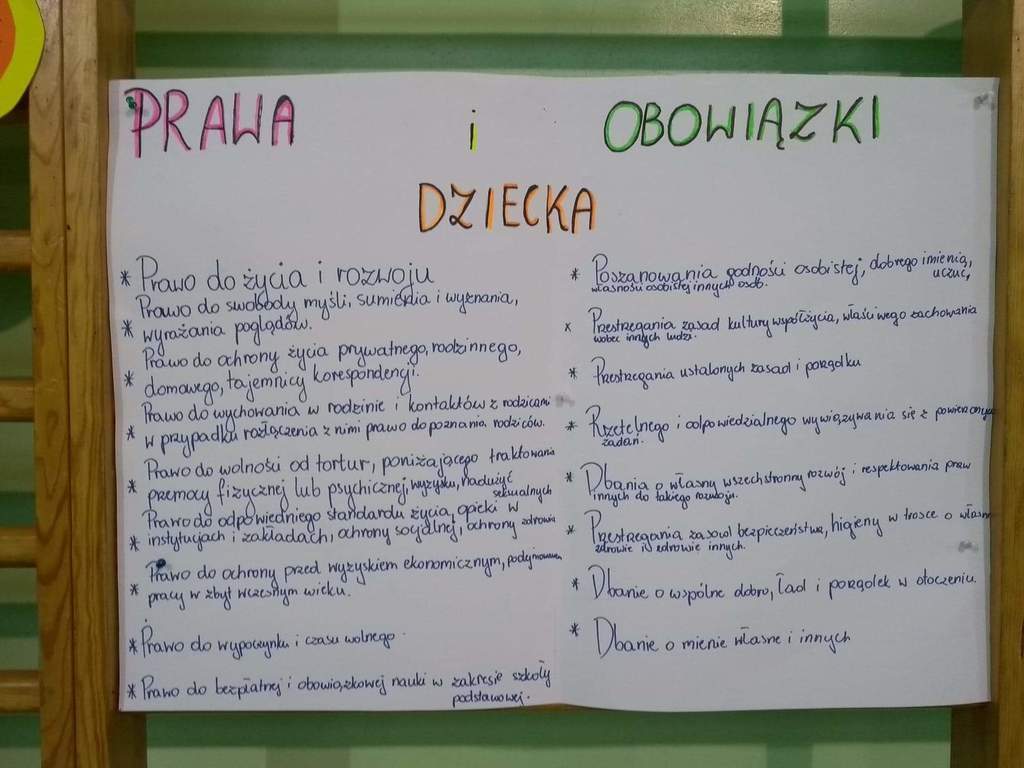 PRAWA i OBOWIĄZKI
DZIECKA
* Prawo do życia i rozwoju
Prawo do swobody myśli, sumienia i wyznania,
* wyrażania poglądów.
Prawo do ochrony życia prywatnego, rodzinnego,
* domowego, tajemnicy korespondencji.
Prawo do wychowania w rodzinie i kontaktów z rodzicami
* w przypadku rozłączenia z nimi prawo do poznania rodziców.
Prawo do wolności od tortur, poniżającego traktowania
* przemocy fizycznej lub psychicznej, wyzysku, nadużyć
seksualnych
Prawo do odpowiedniego standardu życia, opieki w
* instytucjach i zakładach, ochrony socjalnej, ochrony zdrowia
Prawo do ochrony przed wyzyskiem ekonomicznym, podejmowania
* pracy w zbyt wczesnym wieku.
* Prawo do wypoczynku i czasu wolnego.
* Prawo do bezpłatnej i obowiązkowej nauki w zakresie szkoły
podstawowej.
* Poszanowania godności osobistej, dobrego imienia,
uczuć,
własności osobistej innych osób.
x Przestrzegania zasad kultury współżycia, właściwego zachowania
wobec innych ludzi.
* Przestrzegania ustalonych zasad i porządku
* Rzetelnego i odpowiedzialnego wywiązywania się z powierzonych
zadań.
* Dbania o własny wszechstronny rozwój i respektowania praw
innych do takiego rozwoju.
* Przestrzegania zasad bezpieczeństwa, higieny w trosce o własne
zdrowie i zdrowie innych.
* Dbanie o wspólne dobro, ład i porządek w otoczeniu.
* Dbanie o mienie własne i innych